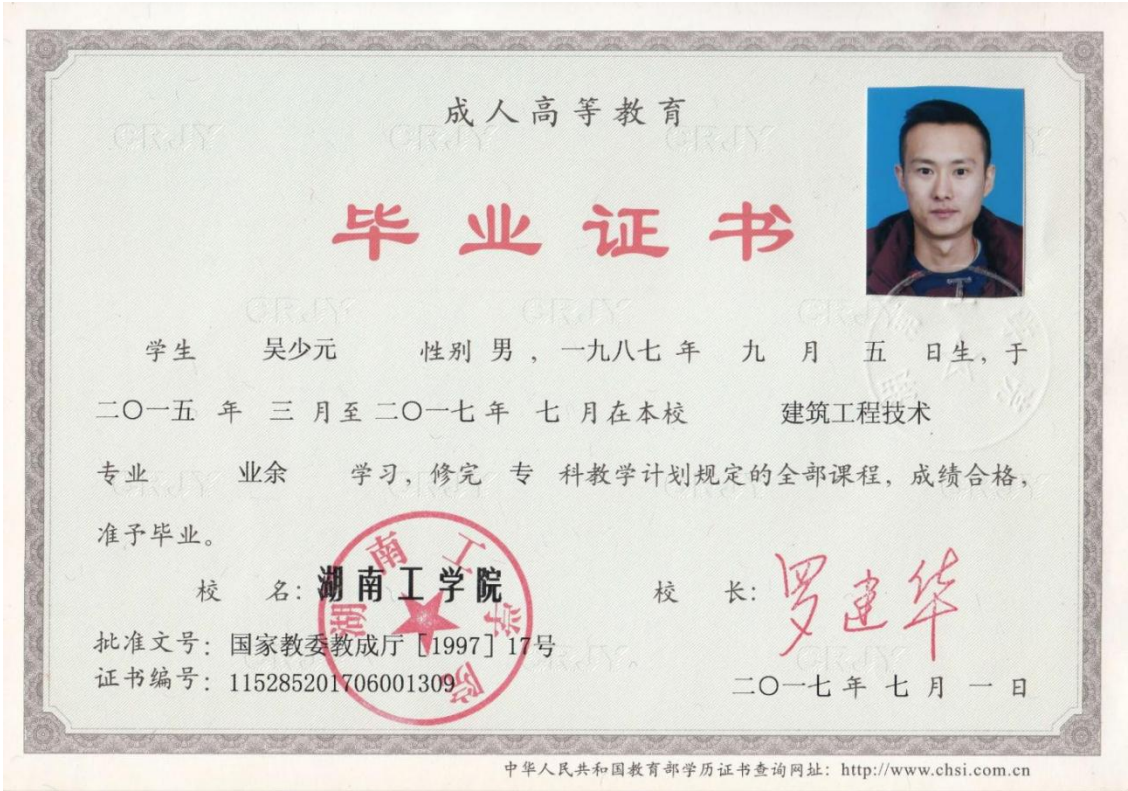 成人高等教育
毕业证书
学生 吴少元 性别 男，一九八七 年 九 月 五 日生，于
二〇一五 年 三 月至 二〇一七 年 七 月在本校 建筑工程技术
专业 业余 学习，修完 专 科教学计划规定的全部课程，成绩合格，
准予毕业。
校 名：湖南工学院
校 长：罗建华
批准文号：国家教委教成厅［1997］17号
证书编号：115285201706001309
二〇一七 年 七 月 一 日
湖南工学院
CRJY
中华人民共和国教育部学历证书查询网址：http://www.chsi.com.cn